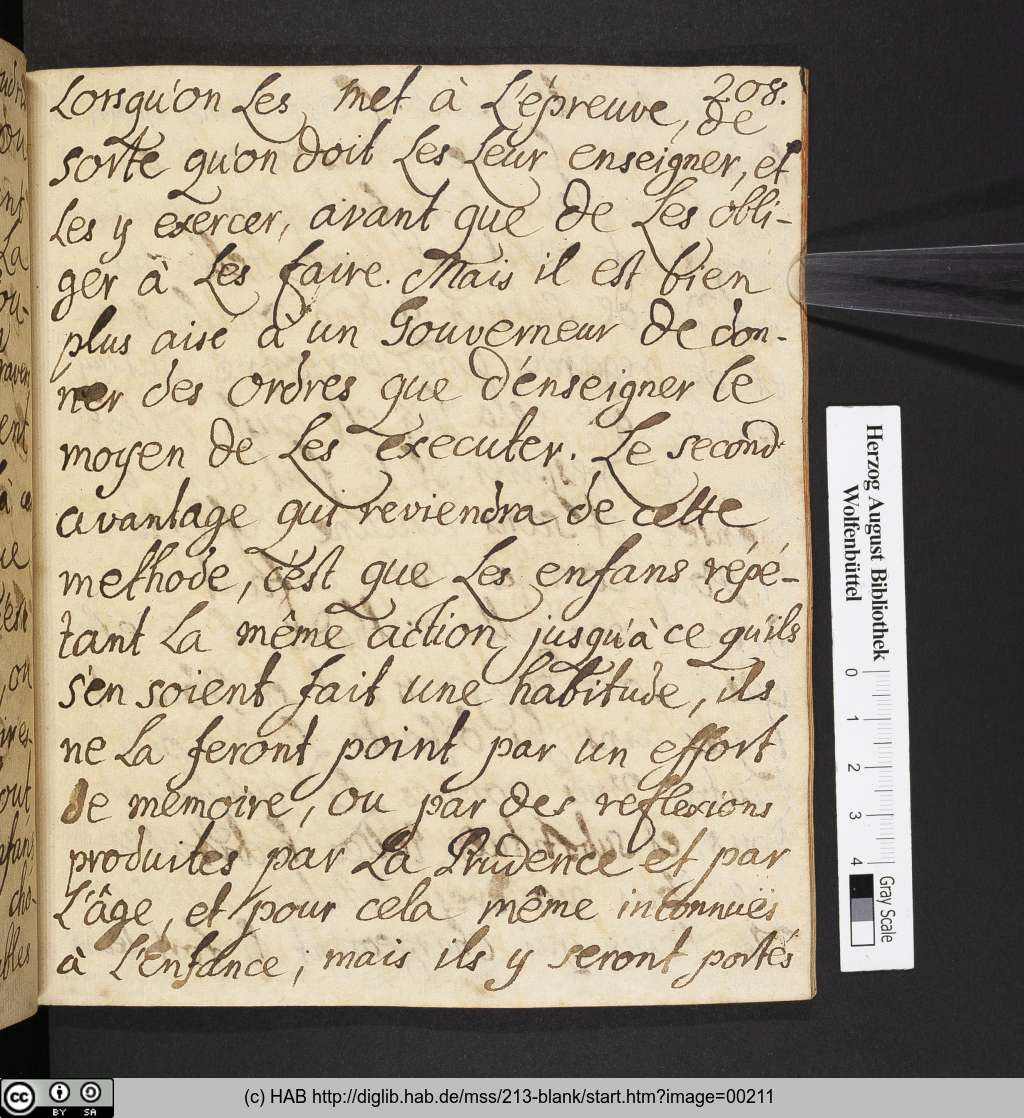 208.
Lorsqu'on Les met à L'épreuve, de
sorte qu'on doit Les Leur enseigner, et
Les y exercer, avant que de Les obli-
ger à Les faire. Mais il est bien
plus aisé à un Gouverneur de don-
ner des ordres que d'enseigner le
moyen de Les executer. Le second
avantage qui reviendra de cette
methode, c'est que Les enfans répé-
tant La même action jusqu'à ce qu'ils
s'en soient fait une habitude, ils
ne La feront point par un effort
de memoire, ou par des reflexions
produites par La Prudence et par
L'âge, et pour cela même inconnuës
à L'enfance; mais ils y seront portés
Herzog August Bibliothek
Wolfenbüttel
0 1 2 3 4
Gray Scale
cc BY SA
(c) HAB http://diglib.hab.de/mss/213-blank/start.htm?image=00211